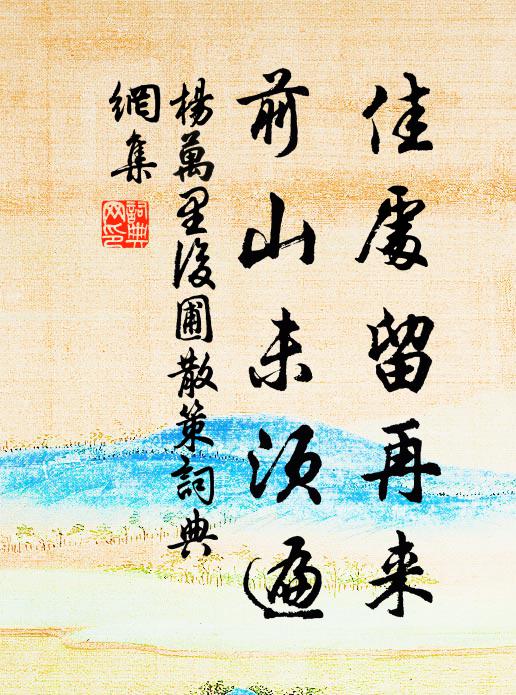 佳處留再来
前山未須遍
楊萬里後圃散策詞典
網集
詞典
网印